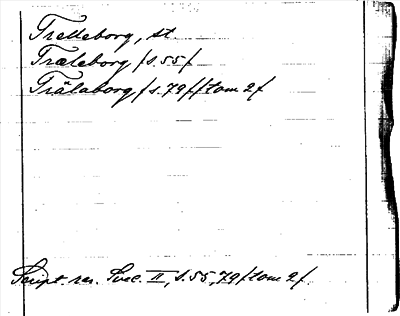 Trelleborg, st.
Træleborg /s.55/
Trälaborg /s.79 f/ tom 2/
Script. rer. Svec. II, s.55, 79 f tom 2/.